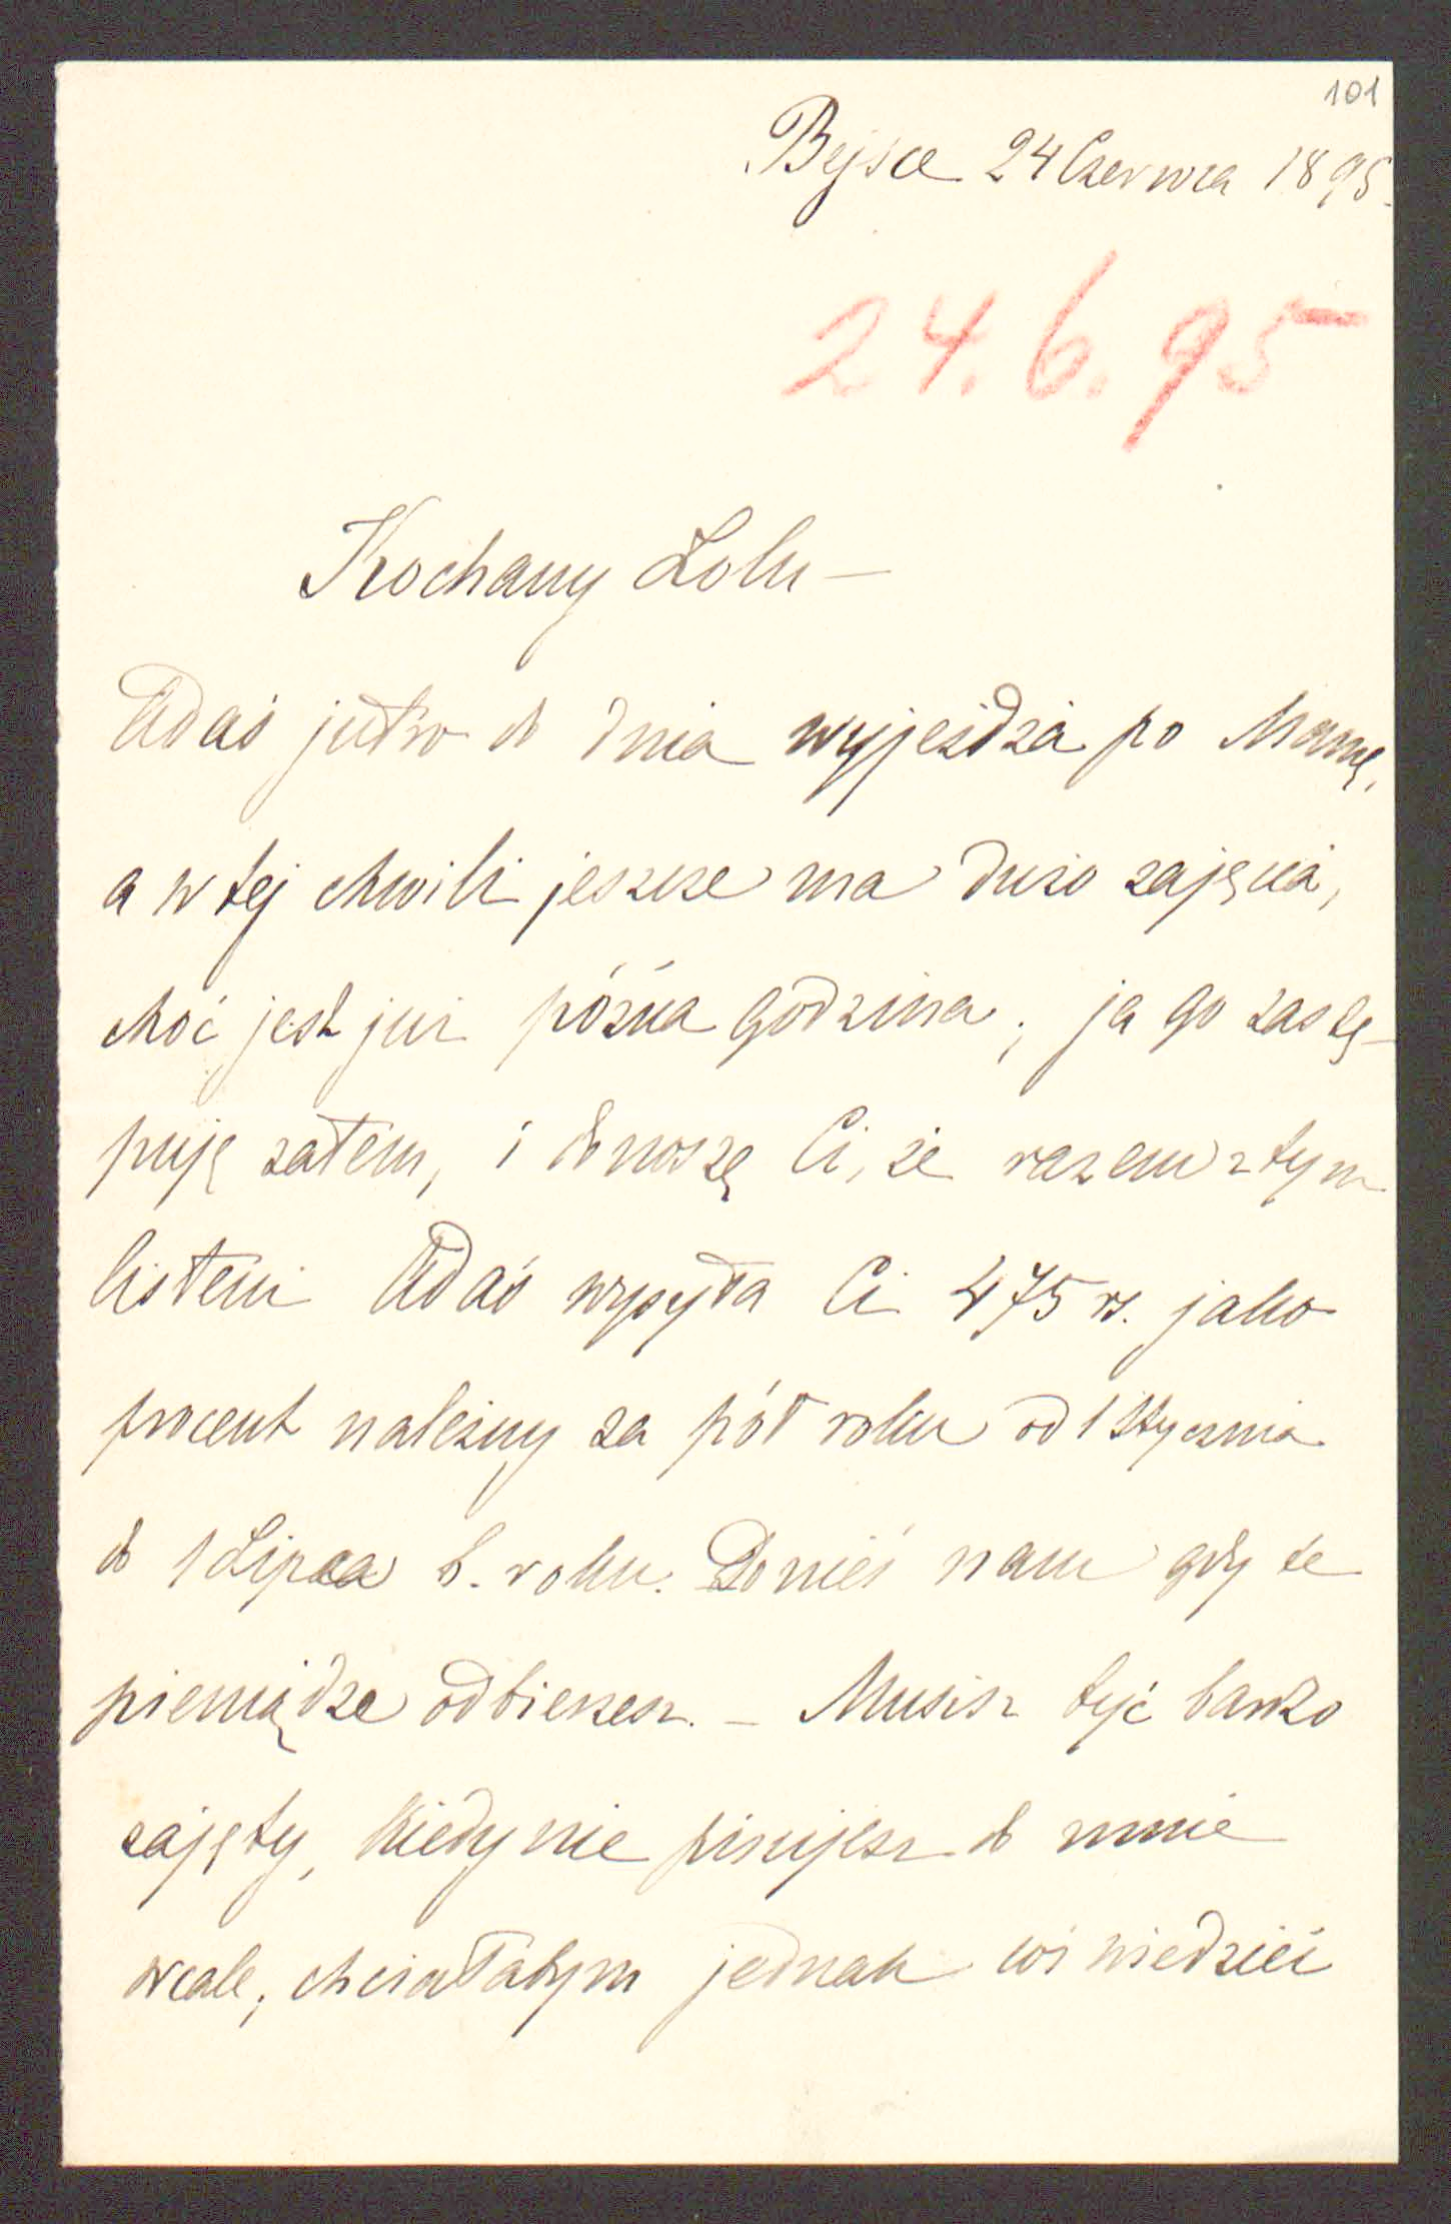 101
Bejsce 24 Czerwca 1895.
24.6.95
Kochany Lolu —
Adaś jutro do dnia wyjeżdża po Mamę,
a w tej chwili jeszcze ma dużo zajęcia,
choć jest już późna godzina; ja go zastę-
puję zatem, i donoszę Ci, że razem z tym
listem Adaś wysyła Ci 475 rs. jako
procent należny za pół roku od 1 Stycznia
do 1 Lipca b. roku. Donieś nam gdy te
pieniądze odbierzesz. — Musisz być bardzo
zajęty, kiedy nie pisujesz do mnie
wcale; chciałabym jednak coś wiedzieć